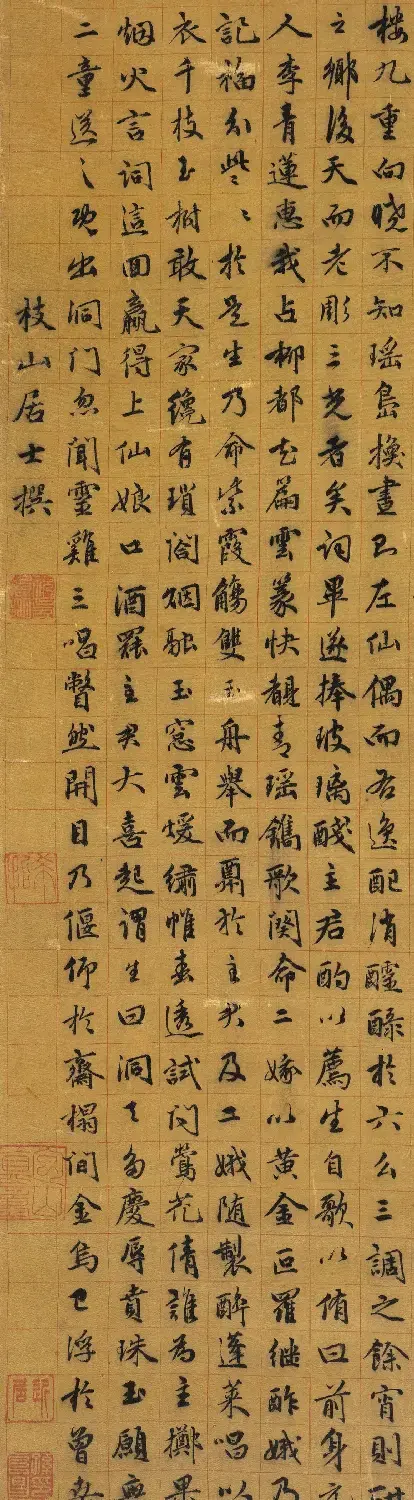 楼九重向晓不知瑶島换畫只左仙偶而右逸配消醽醁於六么三調之餘宵則
之鄉後天而老彫三光者矣詞畢遂捧玻璃醆主君酌以薦生自歌以侑曰前身
人李青蓮惠我占柳都花篇雲篆快覩青瑶鐫歌闋命二娥以黄金叵羅继酢娥乃
記福分㱔〻於是生乃命紫霞觴雙玉舟舉而酹於主君及二娥随製醉蓬莱唱以
衣千枝玉樹敢天家纔有瑣閤烟融玉窓雲煖繡帷春透試问鶯花倩誰為主擲果
烟火言詞這回贏得上仙娘口酒罷主君大喜起謂生曰洞天多慶辱賁珠玉願無
二童送之既出洞门忽聞靈雞三唱瞥然開目乃偃仰於齋榻间金烏已浮於曾
枝山居士撰